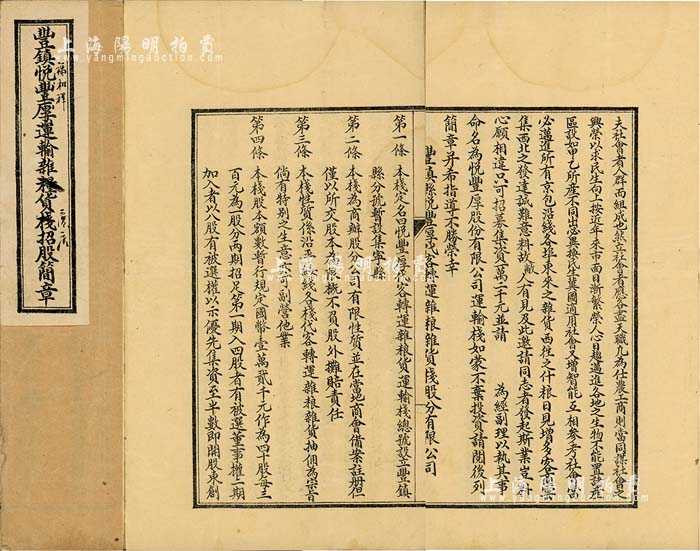 上海陽明拍賣
www.yangmingauction.com
豐鎮悅豐厚運輸雜粮貨棧招股簡章
夫社會者人群而組成也然立社會者應各盡天職凡為仕農工商則當同謀社會之
興榮以求民生向上按近年來市面日漸繁榮人心日趨邁進各地之生物不能置諸產
區設如甲乙所產不同出必與換民生冀圖適用社會又增智能互相參考社會富
必邁進所有京包沿綫各埠東來之雜貨西往之什粮日見增多客商雲
集西北之發達誠難意料故敝人有見及此邀請同志者後起斯業豈料
心願相違只可招募集資萬二千元並請　為經副理以執其事
命名為悅豐厚股份有限公司運輸棧如蒙不棄投資請閱後列
簡章并希指導不勝榮幸
豐鎮縣悅豐厚代客轉運雜粮雜貨棧股分有限公司
第一條　本棧定名曰悅豐厚代客轉運雜粮貨運輸棧總號設立豐鎮
縣分號暫設集寧縣
第二條　本棧為商辦股分公司有限性質並在當地商會備案註冊但
僅以所交股本為根概不負股外攤賠責任
第三條　本棧性質係沿平綏綫各棧代客轉運雜粮雜貨抽佣為宗旨
倘有特別之生意亦可副營他業
第四條　本棧股本額數暫行規定國幣壹萬貳千元作為四十股每三
百元為股分兩期招足第一期入四股者有被選董事權二期
加入者以八股有被選權以示優先集資至半數即開股東創